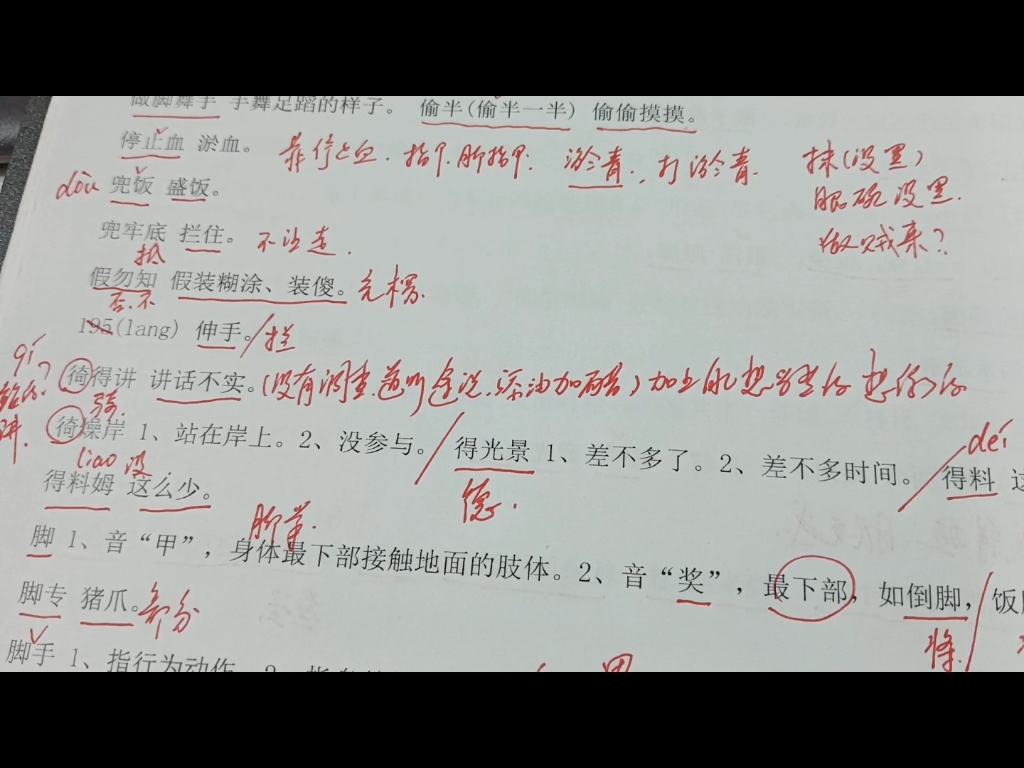 做脚舞手 手舞足蹈的样子。 偷半(偷半一半) 偷偷摸摸。
停止血 淤血。 靠停止血. 指甲. 脚指甲. 淤青. 打淤青 抹(没置)
dōu 兜饭 盛饭。 眼碗没置.
兜牢底 拦住。 不让走. 做贼来?
假勿知 假装糊涂、装傻。 充楞.
否.不
195(lang) 伸手。/拦
qí 徛得讲 讲话不实。(没有调查.道听途说.添油加醋) 加上自己想
骑
徛燥岸 1、站在岸上。2、没参与。/ 得光景 1、差不多了。2、差不多时间。/ 得料 这
liao 没 德. deí
得料姆 这么少。
脚掌.
脚 1、音“甲”，身体最下部接触地面的肢体。2、音“奖”，最下部，如倒脚，/饭
脚专 猪爪。部分 将.
脚手 1、指行为动作。2、指